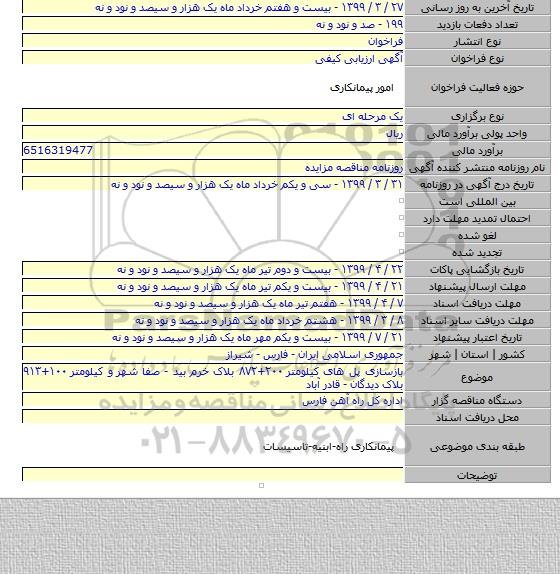 تاریخ آخرین به روز رسانی ۲۷ / ۳ / ۱۳۹۹ - بیست و هفتم خرداد ماه یک هزار و سیصد و نود و نه
تعداد دفعات بازدید ۱۹۹ - صد و نود و نه
نوع انتشار فراخوان
نوع فراخوان آگهی ارزیابی کیفی
حوزه فعالیت فراخوان امور پیمانکاری
نوع برگزاری یک مرحله ای
واحد پولی برآورد مالی ریال
برآورد مالی 6516319477
نام روزنامه منتشر کننده آگهی روزنامه مناقصه مزایده
تاریخ درج آگهی در روزنامه ۳۱ / ۳ / ۱۳۹۹ - سی و یکم خرداد ماه یک هزار و سیصد و نود و نه
بین المللی است
احتمال تمدید مهلت دارد
لغو شده
تجدید شده
تاریخ بازگشایی پاکات ۲۲ / ۴ / ۱۳۹۹ - بیست و دوم تیر ماه یک هزار و سیصد و نود و نه
مهلت ارسال پیشنهاد ۲۱ / ۴ / ۱۳۹۹ - بیست و یکم تیر ماه یک هزار و سیصد و نود و نه
مهلت دریافت اسناد ۷ / ۴ / ۱۳۹۹ - هفتم تیر ماه یک هزار و سیصد و نود و نه
مهلت دریافت سایر اسناد ۸ / ۳ / ۱۳۹۹ - هشتم خرداد ماه یک هزار و سیصد و نود و نه
تاریخ اعتبار پیشنهاد ۲۱ / ۷ / ۱۳۹۹ - بیست و یکم مهر ماه یک هزار و سیصد و نود و نه
کشور | استان | شهر جمهوری اسلامی ایران - فارس - شیراز
موضوع بازسازی پل های کیلومتر ۲۰۰+۸۷۲ بلاک خرم بید - صفا شهر و کیلومتر ۱۰۰+۹۱۳
بلاک دیدگان - قادر آباد
دستگاه مناقصه گزار اداره کل راه آهن فارس
محل دریافت اسناد
طبقه بندی موضوعی پیمانکاری راه-ابنیه-تاسیسات
توضیحات
۰۲۱-۸۸۳۴۹۶۷۰-۵